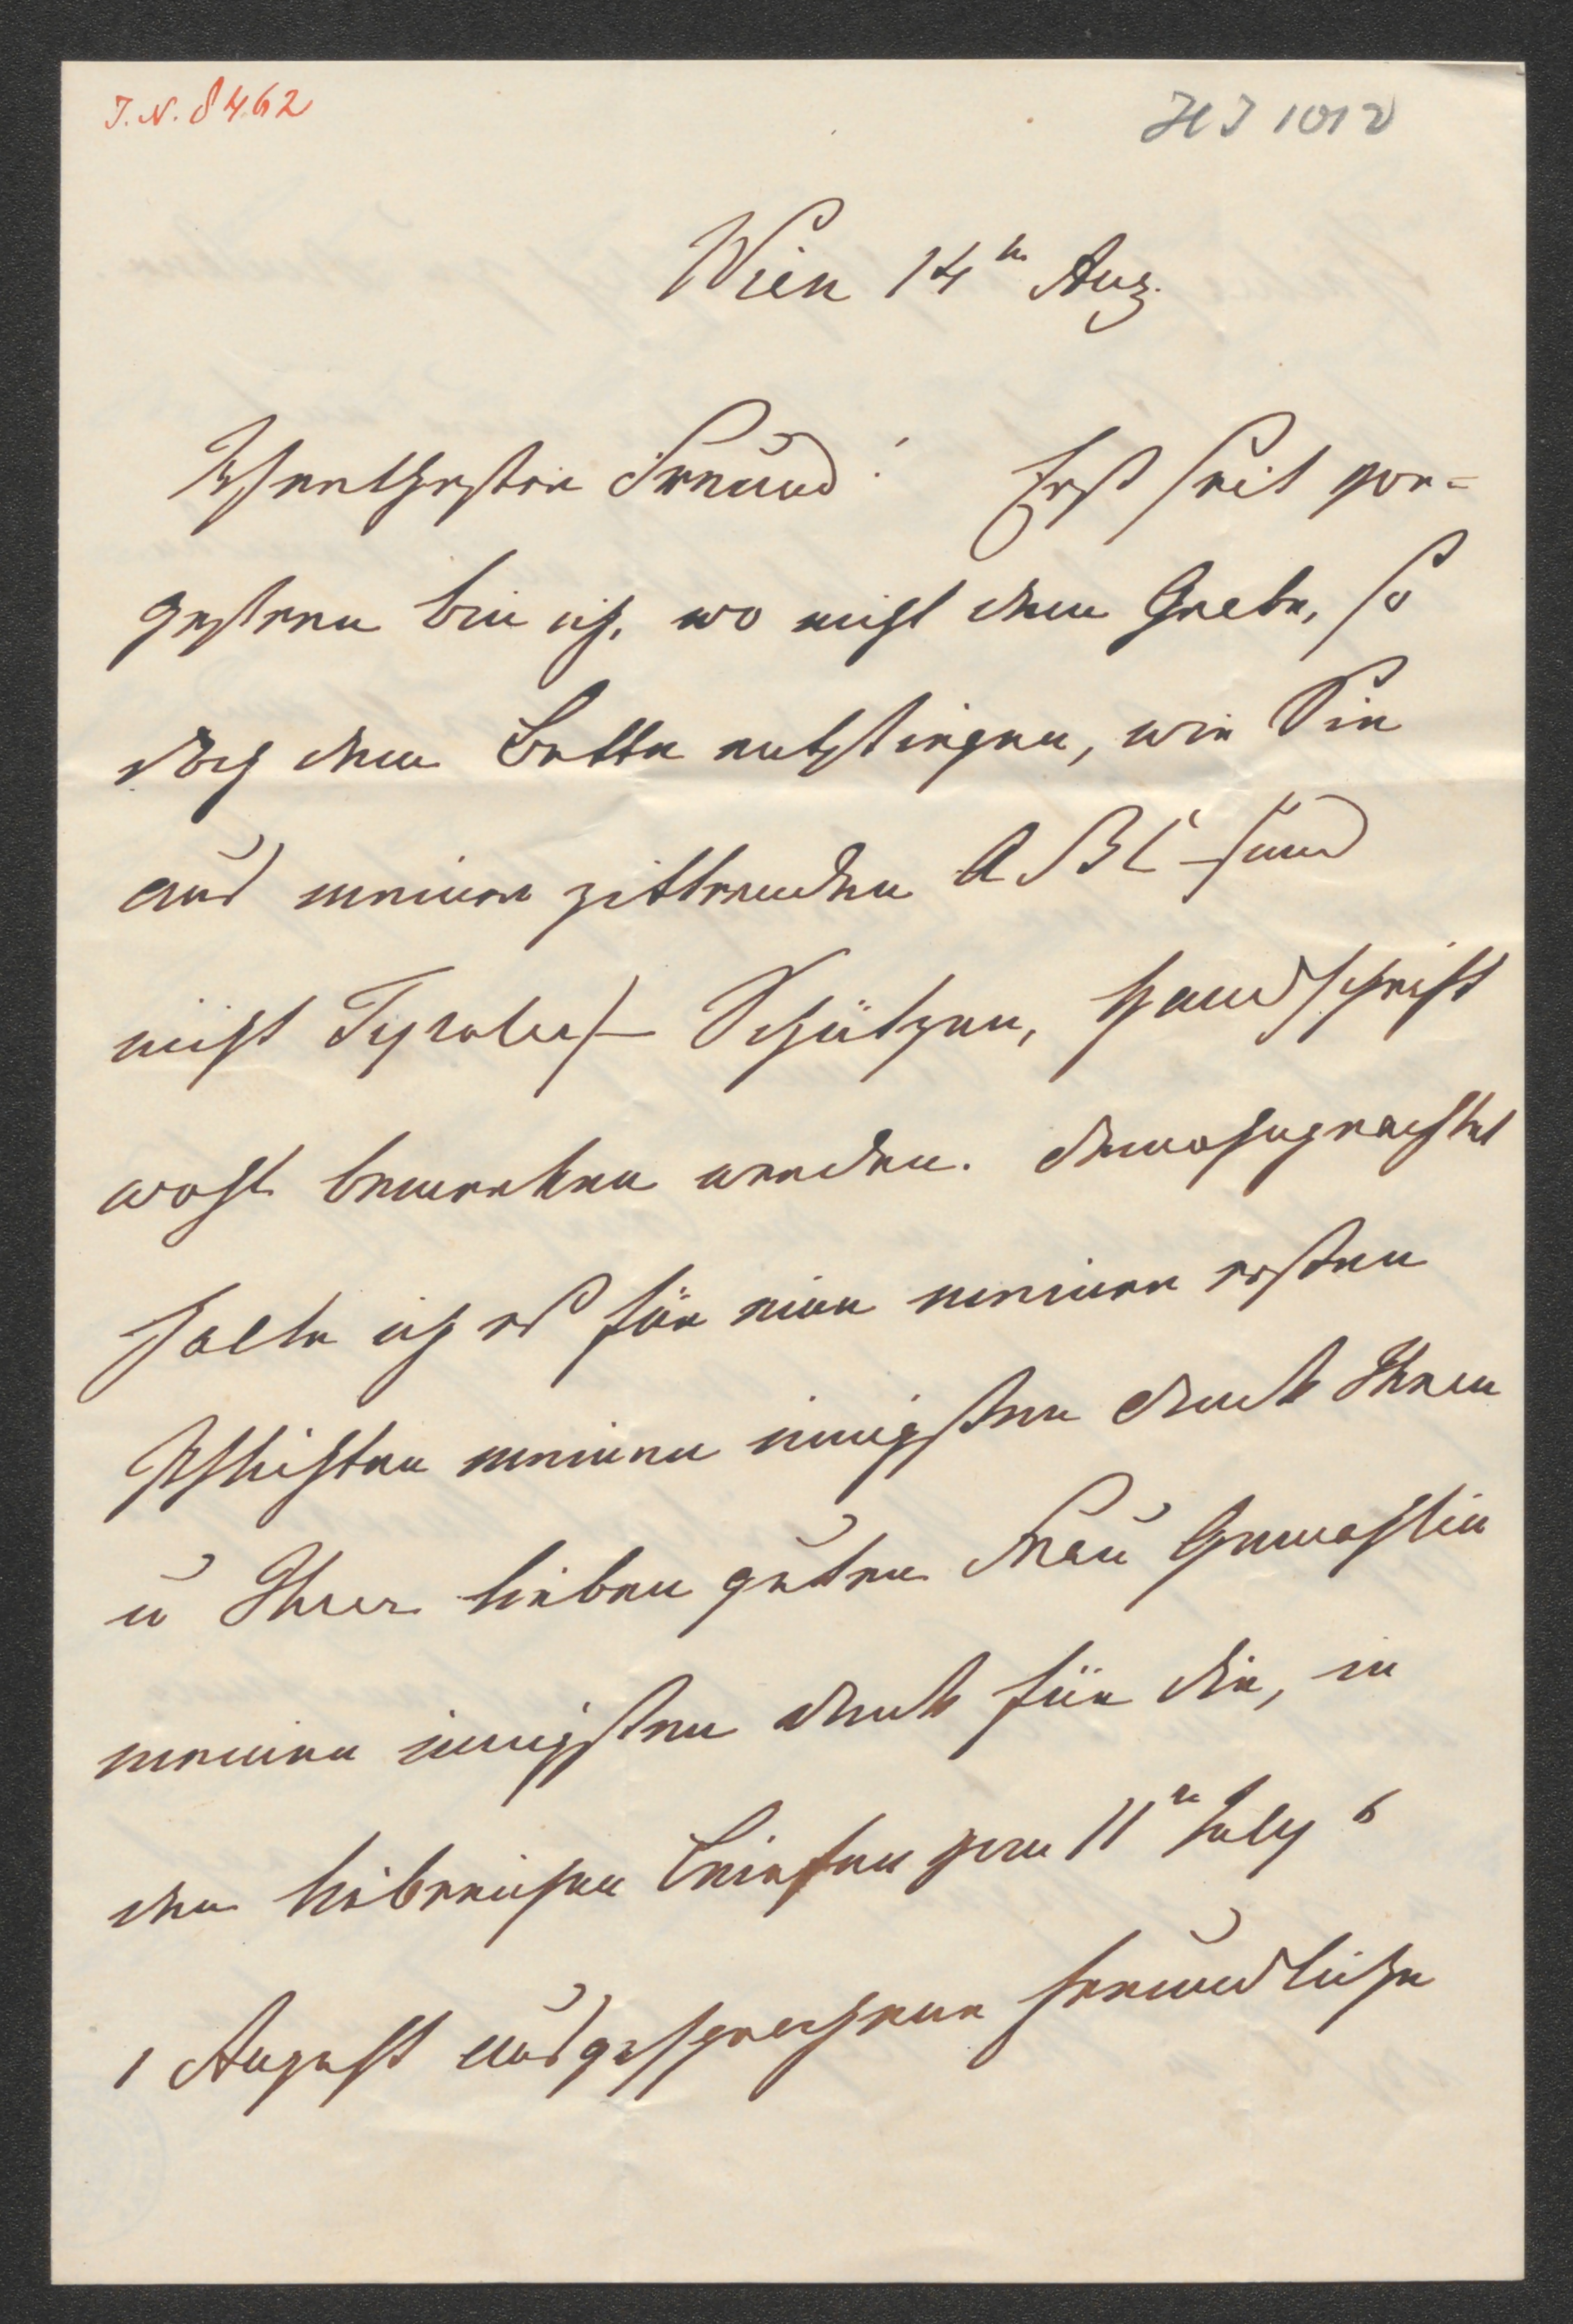 J. N. 8462
HJ 1012
Wien 14ten Aug.
Theuerster Freund! Erst seit vor-
gestern bin ich, wo nicht dem Grabe, so
doch dem Bette entstiegen, wie Sie
aus meiner zitternden ABC- und
nicht Tyroler- Schützen, Handschrift
wohl bemerken werden. Demohngeachtet
halte ich es für eine meiner ersten
Pflichten meinen innigsten Dank Ihnen
u Ihrer lieben guten Frau Gemahlin
meinen innigsten Dank für die, in
den liebreichen Briefen vom 11ten July &
1 August ausgesprochene freundliche